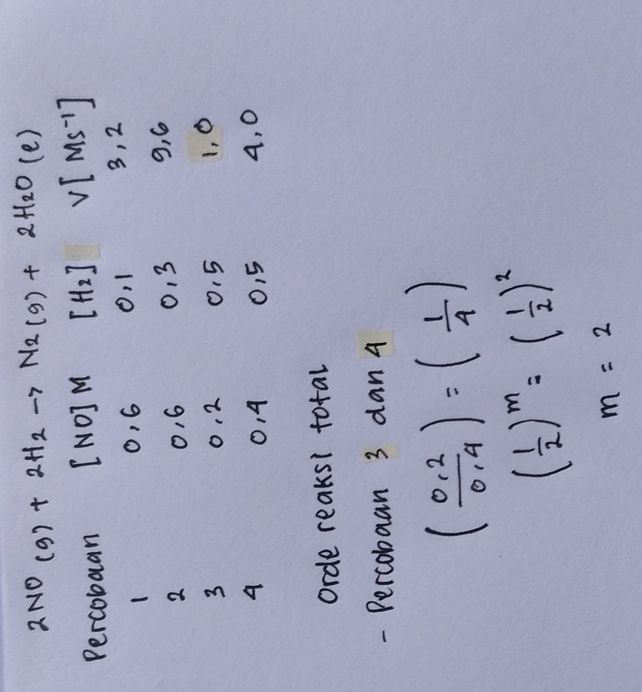 2NO (g) + 2H₂ → N₂ (g) + 2H₂O (e)
Percobaan [NO] M [H₂] V [Ms⁻¹]
1 0,6 0,1 3,2
2 0,6 0,3 9,6
3 0,2 0,5 1,0
4 0,4 0,5 4,0
Orde reaksi total
- Percobaan 3 dan 4
(0,2/0,4) = (1/4)
(1/2)ᵐ = (1/2)²
m = 2